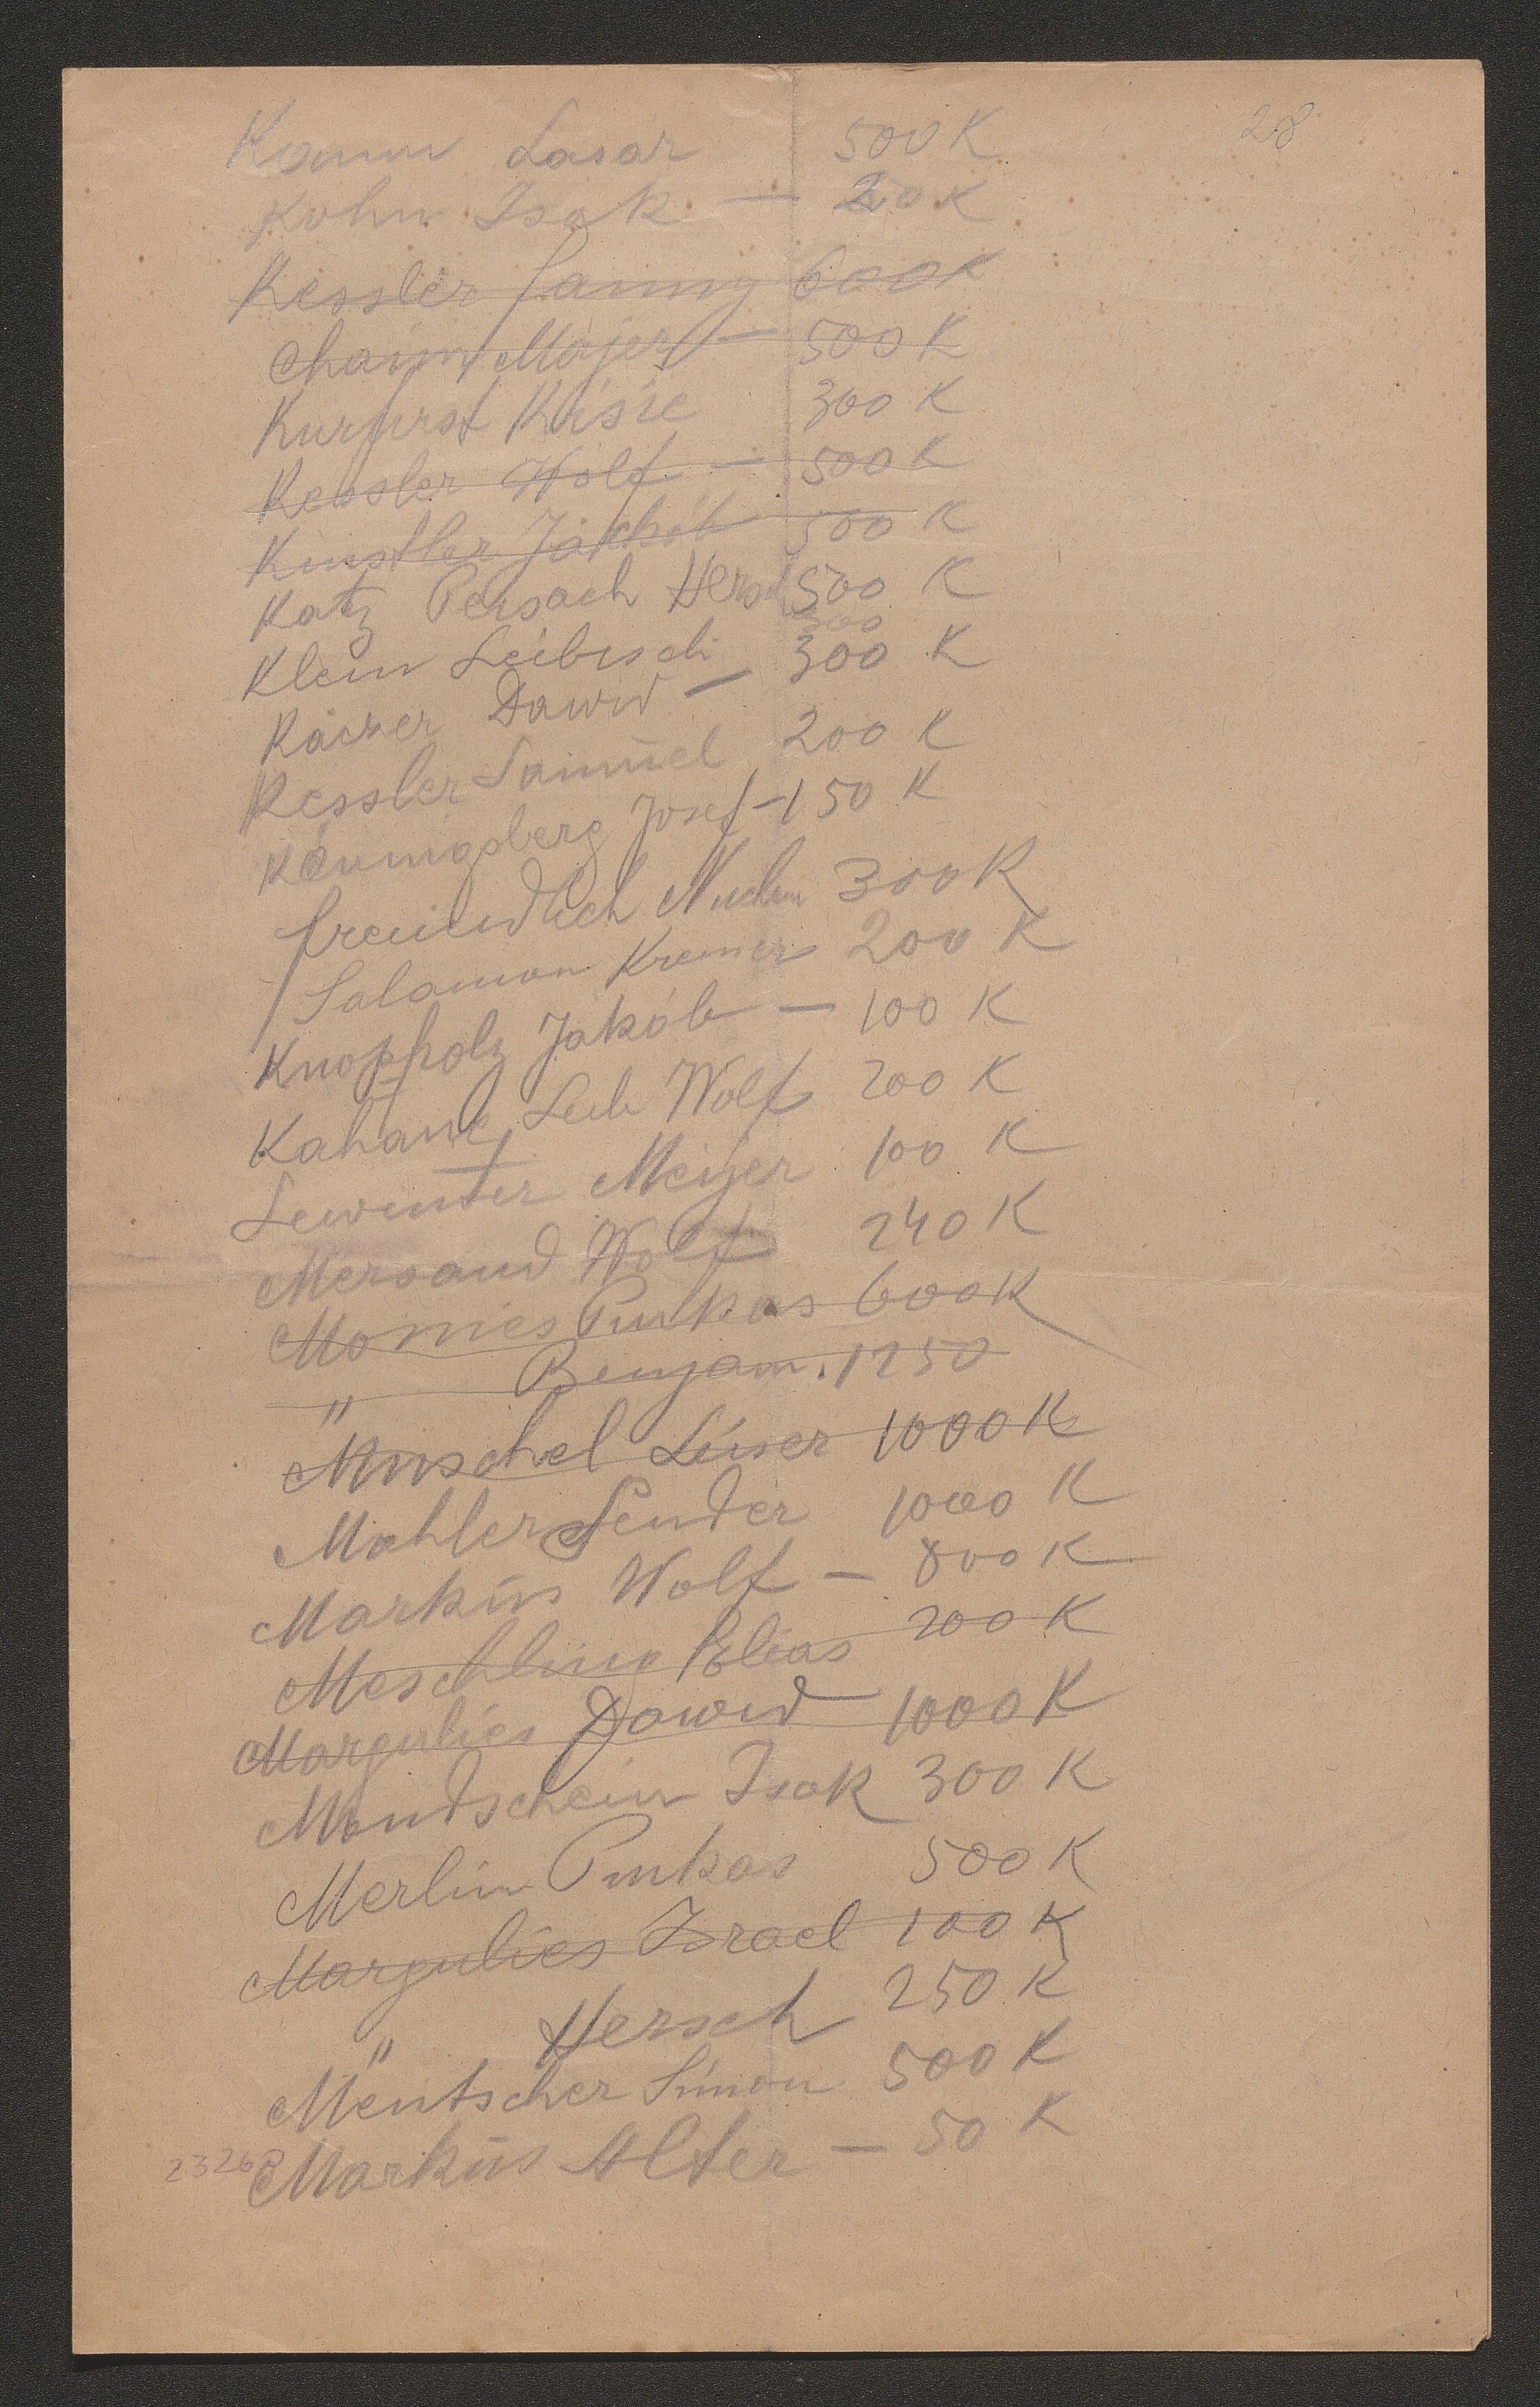 28
Kamm Lasar 500 K
Kohn Isak — 20 K
Kessler Fanny 600 K
Chaim Majer — 500 K
Kurfürst Risie 300 K
Kessler Wolf — 500 K
Künstler Jakob 500 K
Katz Persach Hersch 500 K
300
Klein Leibisch 300 K
Kaiser Dawid —
Kessler Samuel 200 K
Königsberg Josef — 150 K
freiindlich Nuchem 300 K
Salamon Kremer 200 K
Knopfholz Jakób — 100 K
Kahane Leib Wolf 200 K
Lewenter Meijer 100 K
Mersand Wolf 240 K
Monies Pinkas 600 K
" Benjam. 1250
Münschel Leiser 1000 K
Mahler Sender 1000 K
Markus Wolf — 800 K
Meschling Elias 200 K
Margulies Dawid 1000 K
Mondschein Isak 300 K
Merlin Pinkas 500 K
Margulies Israel 100 K
" Hersch 250 K
Mentscher Simon 500 K
Markus Alter — 50 K
2326